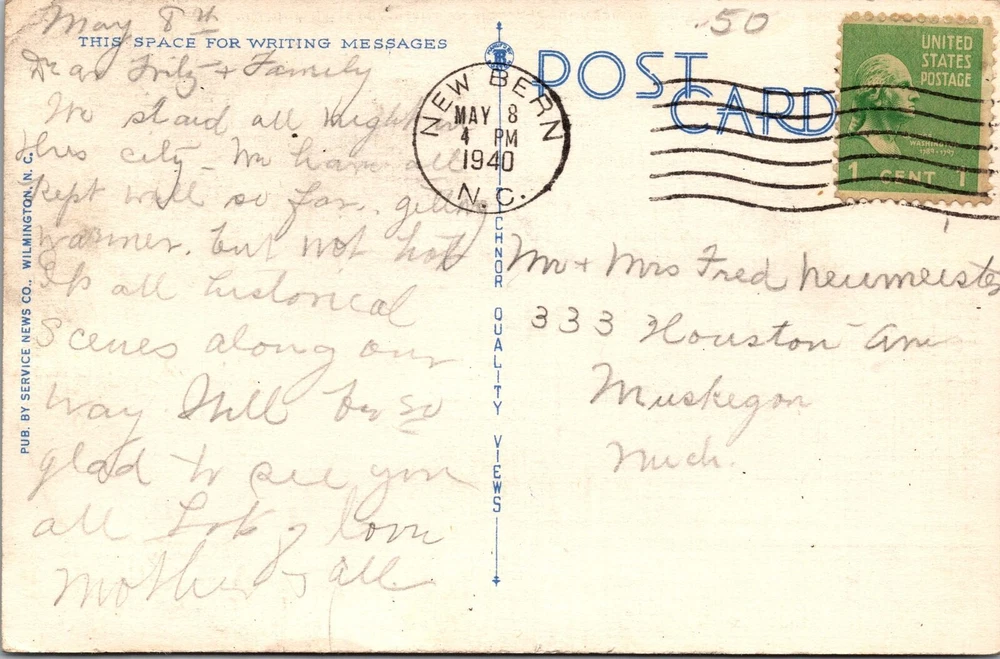 May 8th
THIS SPACE FOR WRITING MESSAGES
Dear Fritz + Family
We staid all night in
this city We have all
kept well so far, getting
warmer, but not hot
Its all historical
scenes along our
way Will be so
glad to see you
all Lots of love
Mother & all
PUB. BY SERVICE NEWS CO., WILMINGTON, N. C.
TICHNOR QUALITY VIEWS
POST CARD
.50
NEW BERN
MAY 8
4 PM
1940
N.C.
UNITED
STATES
POSTAGE
WASHINGTON
1789-1797
1 CENT 1
Mr + Mrs Fred Neumeister
333 Houston Ave
Muskegon
Mich.